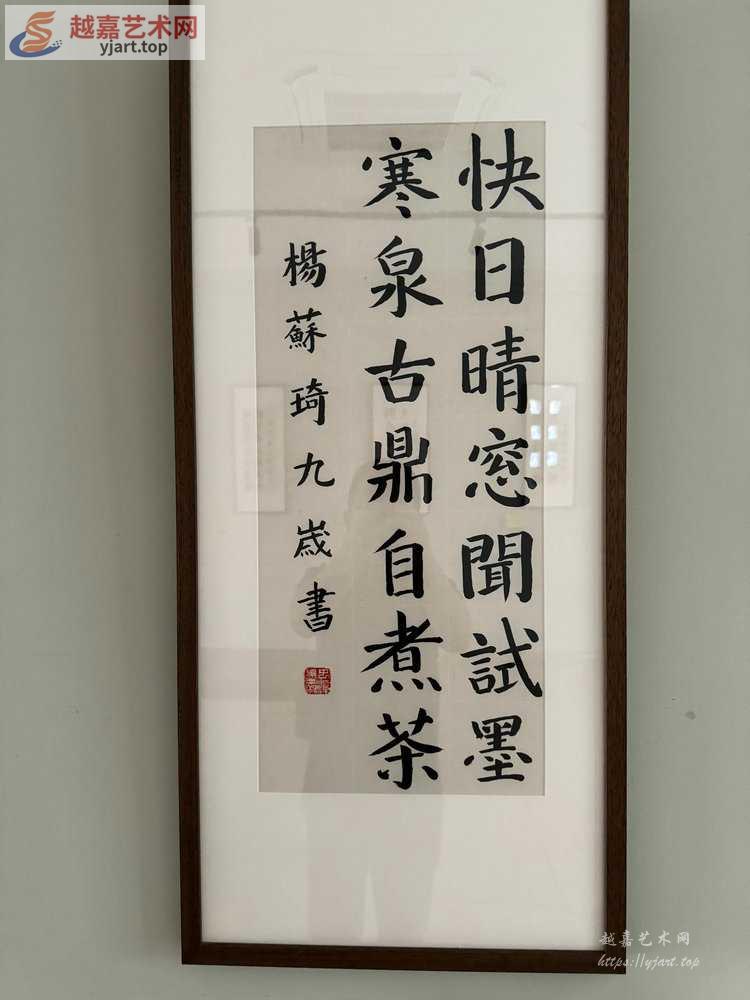 越嘉艺术网
yjart.top
快日晴窓聞試墨
寒泉古鼎自煮茶
楊蘇琦九歲書
越嘉艺术网
https://yjart.top